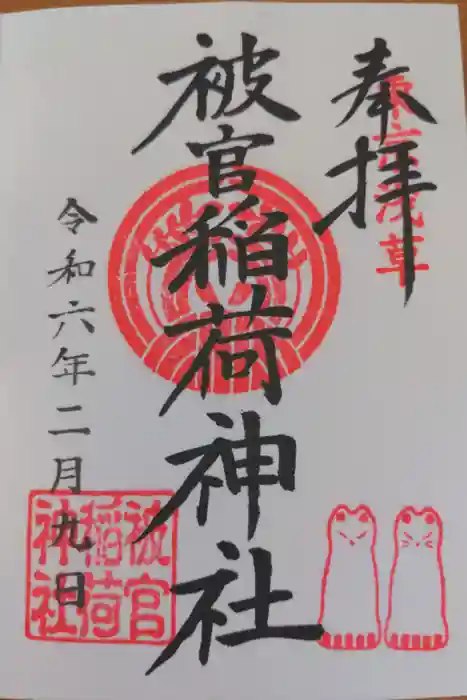 奉拝
東京浅草
被官稲荷神社
令和六年二月九日
被官
稲荷
神社